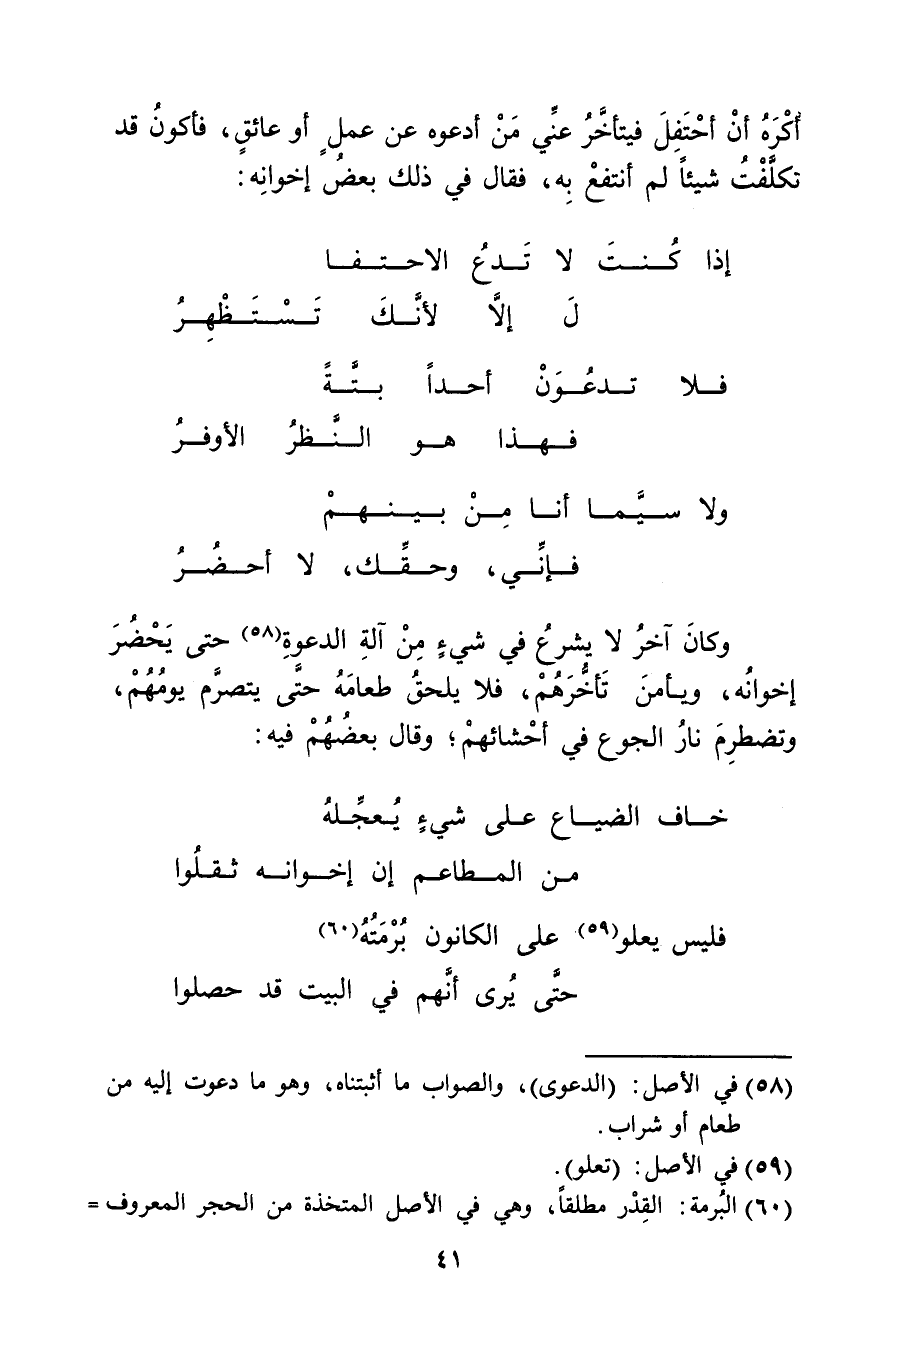 أَكْرَهُ أنْ أحْتَفِلَ فيتأخَّرُ عنِّي مَنْ أدعوه عن عملٍ أو عائقٍ، فأكونُ قد
تكلَّفْتُ شيئاً لم أنتفعْ بِه، فقال في ذلك بعضُ إخوانِه:
إذا كُنتَ لا تَدعُ الاحتفا
لَ إلاَّ لأنَّكَ تَسْتَظْهِرُ
فلا تدعُوَنْ أحداً بتَّةً
فهذا هو النَّظرُ الأوفرُ
ولا سيَّما أنا مِنْ بينهمْ
فإنِّي، وحقِّك، لا أحضُرُ
وكانَ آخرُ لا يشرعُ في شيءٍ مِنْ آلةِ الدعوةِ(٥٨) حتى يَحْضُرَ
إخوانُه، ويأمنَ تَأخُّرَهُمْ، فلا يلحقُ طعامَهُ حتَّى يتصرَّم يومُهُمْ،
وتضطرِمَ نارُ الجوع في أحْشائهمْ؛ وقال بعضُهُمْ فيه:
خاف الضياع على شيءٍ يُعجِّلهُ
من المطاعم إن إخوانه ثقلُوا
فليس يعلو(٥٩) على الكانون بُرْمَتُهُ(٦٠)
حتَّى يُرى أنَّهم في البيت قد حصلوا
(٥٨) في الأصل: (الدعوى)، والصواب ما أثبتناه، وهو ما دعوت إليه من
طعام أو شراب.
(٥٩) في الأصل: (تعلو).
(٦٠) البُرمة: القِدْر مطلقاً، وهي في الأصل المتخذة من الحجر المعروف =
٤١